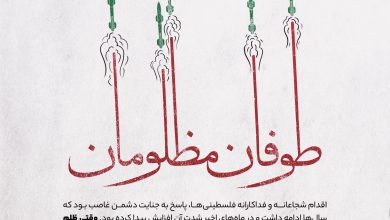 طوفان مظلومان
اقدام شجاعانه و فداکارانه فلسطینی‌ها، پاسخ به جنایت دشمن غاصب بود که
سال‌ها ادامه داشت و در ماه‌های اخیر شدت آن افزایش پیدا کرده بود. وقتی ظلم